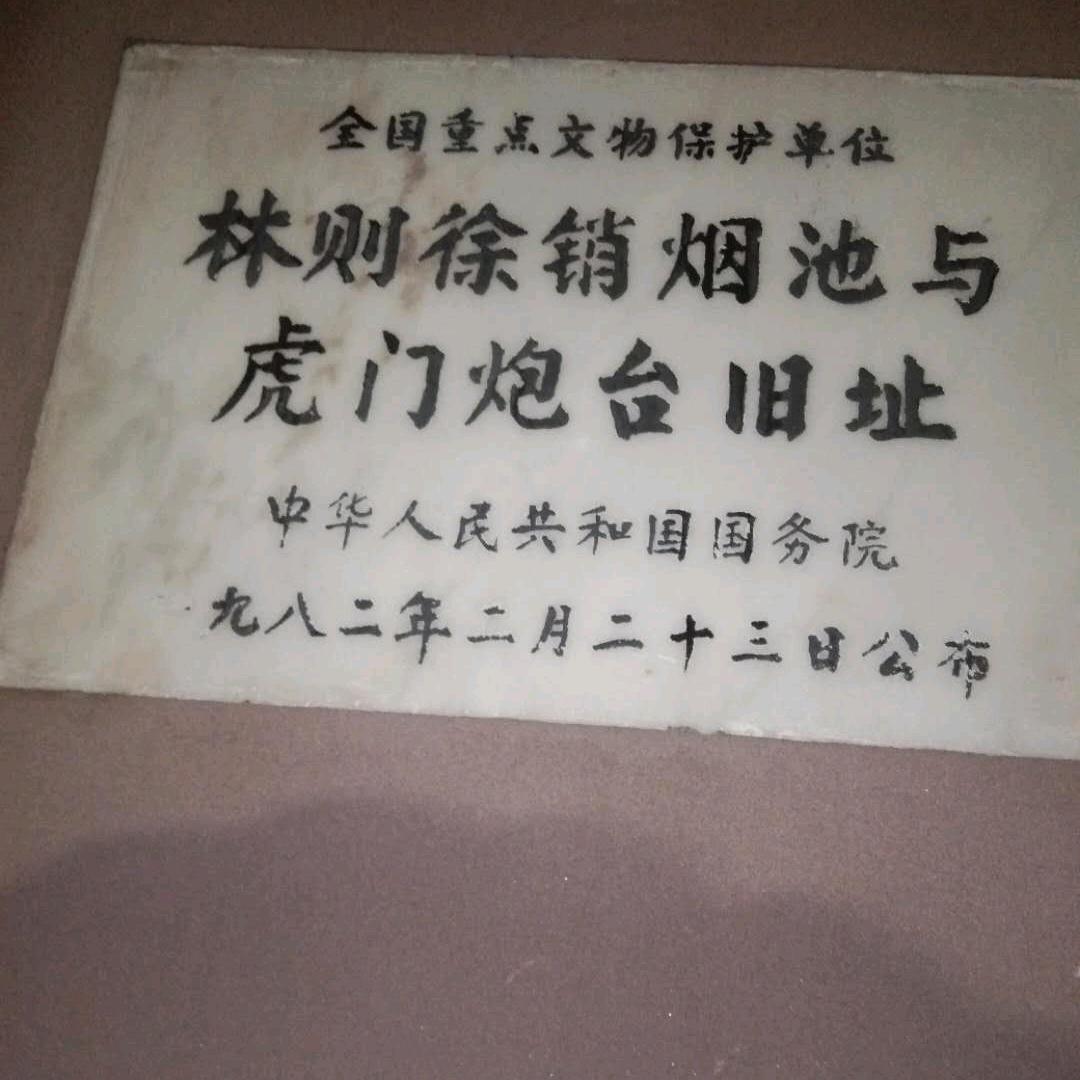 全国重点文物保护单位
林则徐销烟池与
虎门炮台旧址
中华人民共和国国务院
九八二年二月二十三日公布